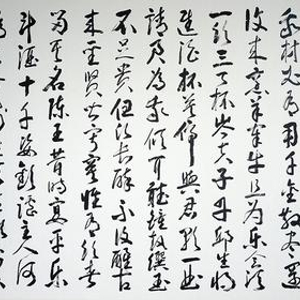 我材必有用千金散盡還
復來烹羊宰牛且為樂會須
一飲三百杯岑夫子丹邱生將
進酒杯莫停與君歌一曲
請君為我傾耳聽鐘鼓饌玉
不足貴但願長醉不復醒古
來聖賢皆寂寞惟有飲者
留其名陳王昔時宴平樂
斗酒十千恣歡謔主人何